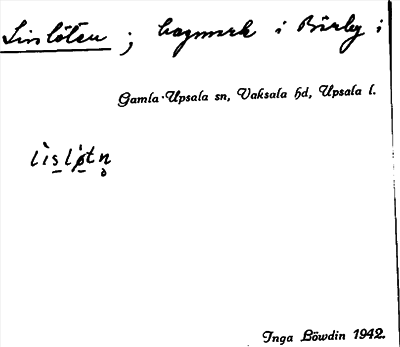 Lislöten ; hagmark i Bärby i
Gamla Upsala sn, Vaksala hd, Upsala l.
lìslø̀tn̥
Inga Löwdin 1942.